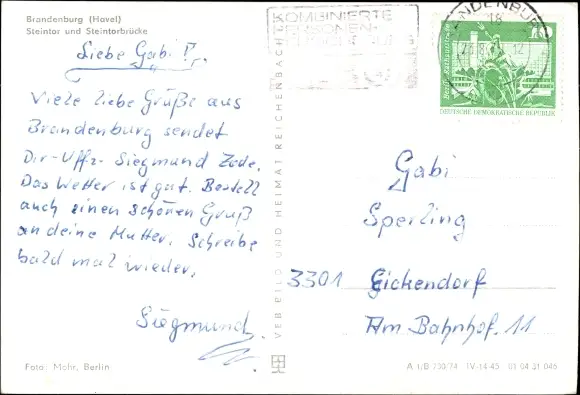 Brandenburg (Havel)
Steintor und Steintorbrücke
Liebe Gabi!
Viele liebe Grüße aus
Brandenburg sendet
Dir - Uffz. Siegmund Zade.
Das Wetter ist gut. Bestell
auch einen schönen Gruß
an deine Mutter. Schreibe
bald mal wieder.
Siegmund.
Foto: Mohr, Berlin
VEB BILD UND HEIMAT REICHENBACH
KOMBINIERTE
PERSONEN-
BRANDENBURG
18
12
Berlin, Rathausstraße
10
DEUTSCHE DEMOKRATISCHE REPUBLIK
Gabi
Sperling
3301 Gickendorf
Am Bahnhof. 11
A 1/B 730/74 IV-14-45 01 04 31 046